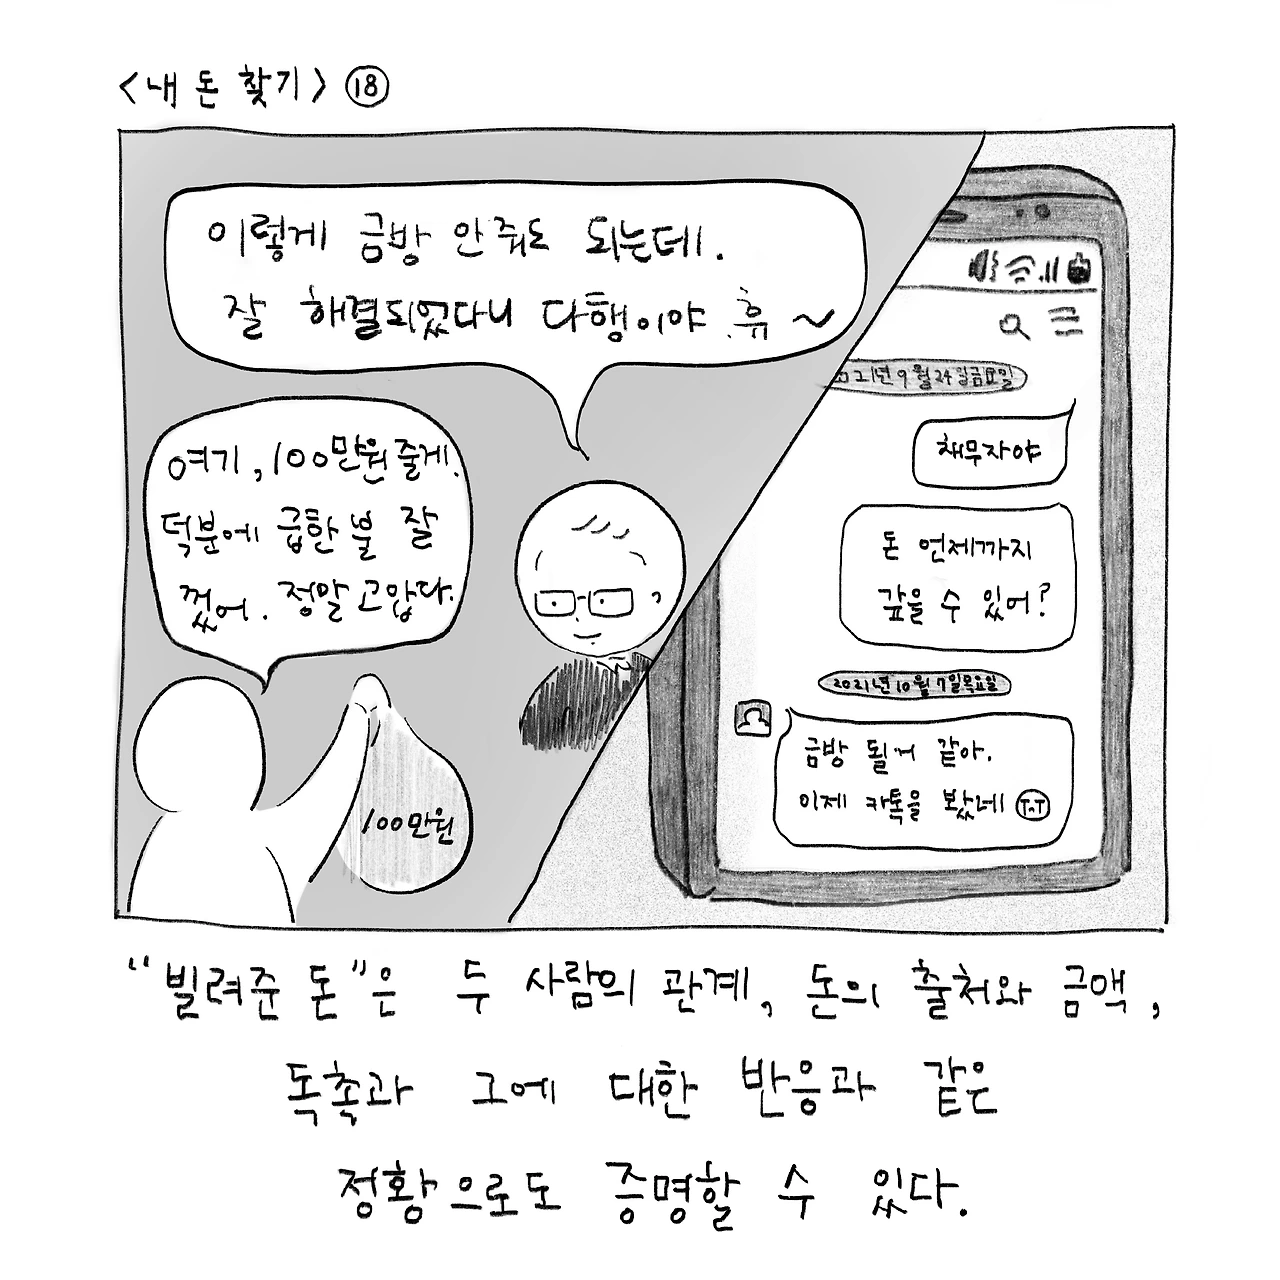 <내 돈 찾기> ⑱
이렇게 금방 안 줘도 되는데.
잘 해결되었다니 다행이야 휴~
여기, 100만원 줄게.
덕분에 급한 불 잘
껐어. 정말 고맙다.
100만원
2021년 9월 24일 금요일
채무자야
돈 언제까지
갚을 수 있어?
2021년 10월 7일 목요일
금방 될거 같아.
이제 카톡을 봤네 T^T
"빌려준 돈"은 두 사람의 관계, 돈의 출처와 금액,
독촉과 그에 대한 반응과 같은
정황으로도 증명할 수 있다.